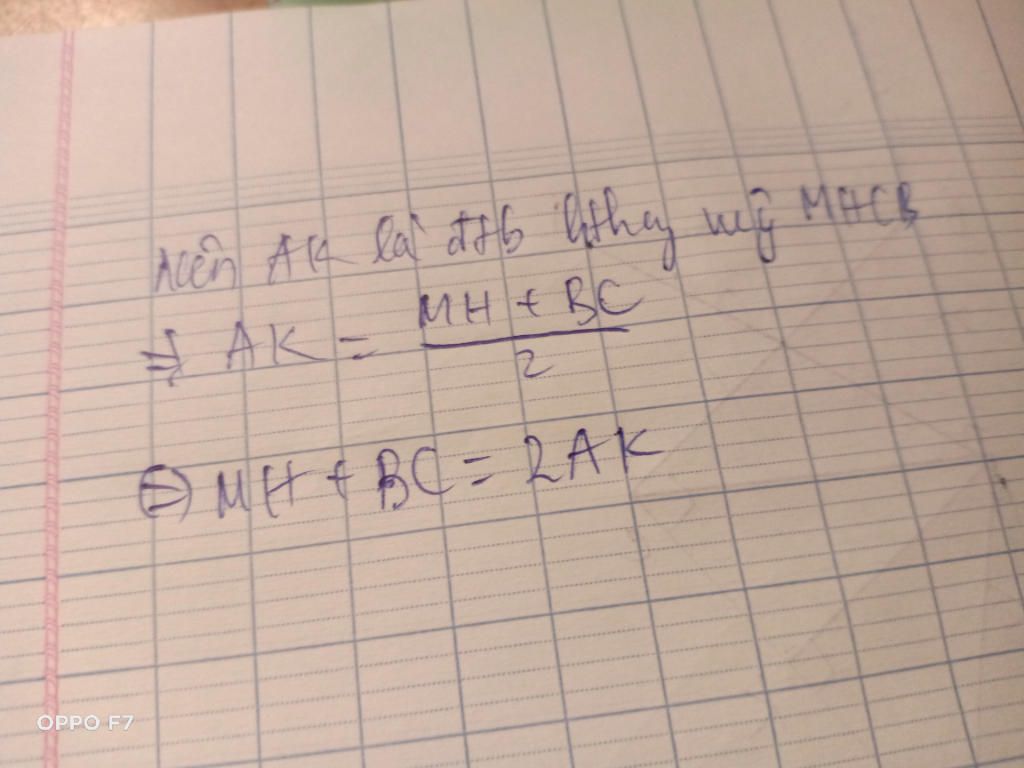 nên AK là đtb hthg MHCB
⇒ AK = \frac{MH + BC}{2}
⇔ MH + BC = 2AK
OPPO F7